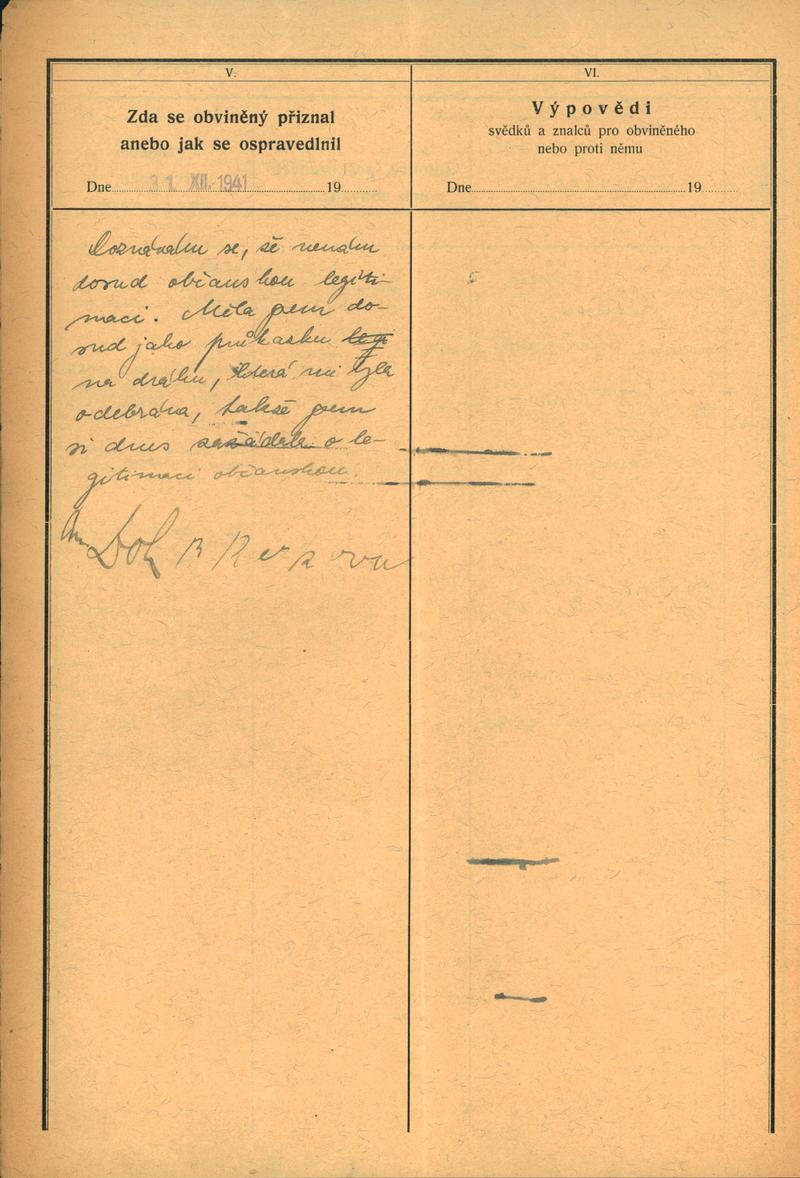 V.
Zda se obviněný přiznal
anebo jak se ospravedlnil
Dne 31. XII. 1941 19
Doznávám se, že nemám
dosud občanskou legiti-
maci. Měla jsem do-
sud jako průkazku legi
na dráhu, která mi byla
odebrána, takže jsem
si dnes zažádala o le-
gitimaci občanskou.
VI.
Výpovědi
svědků a znalců pro obviněného
nebo proti němu
Dne 19